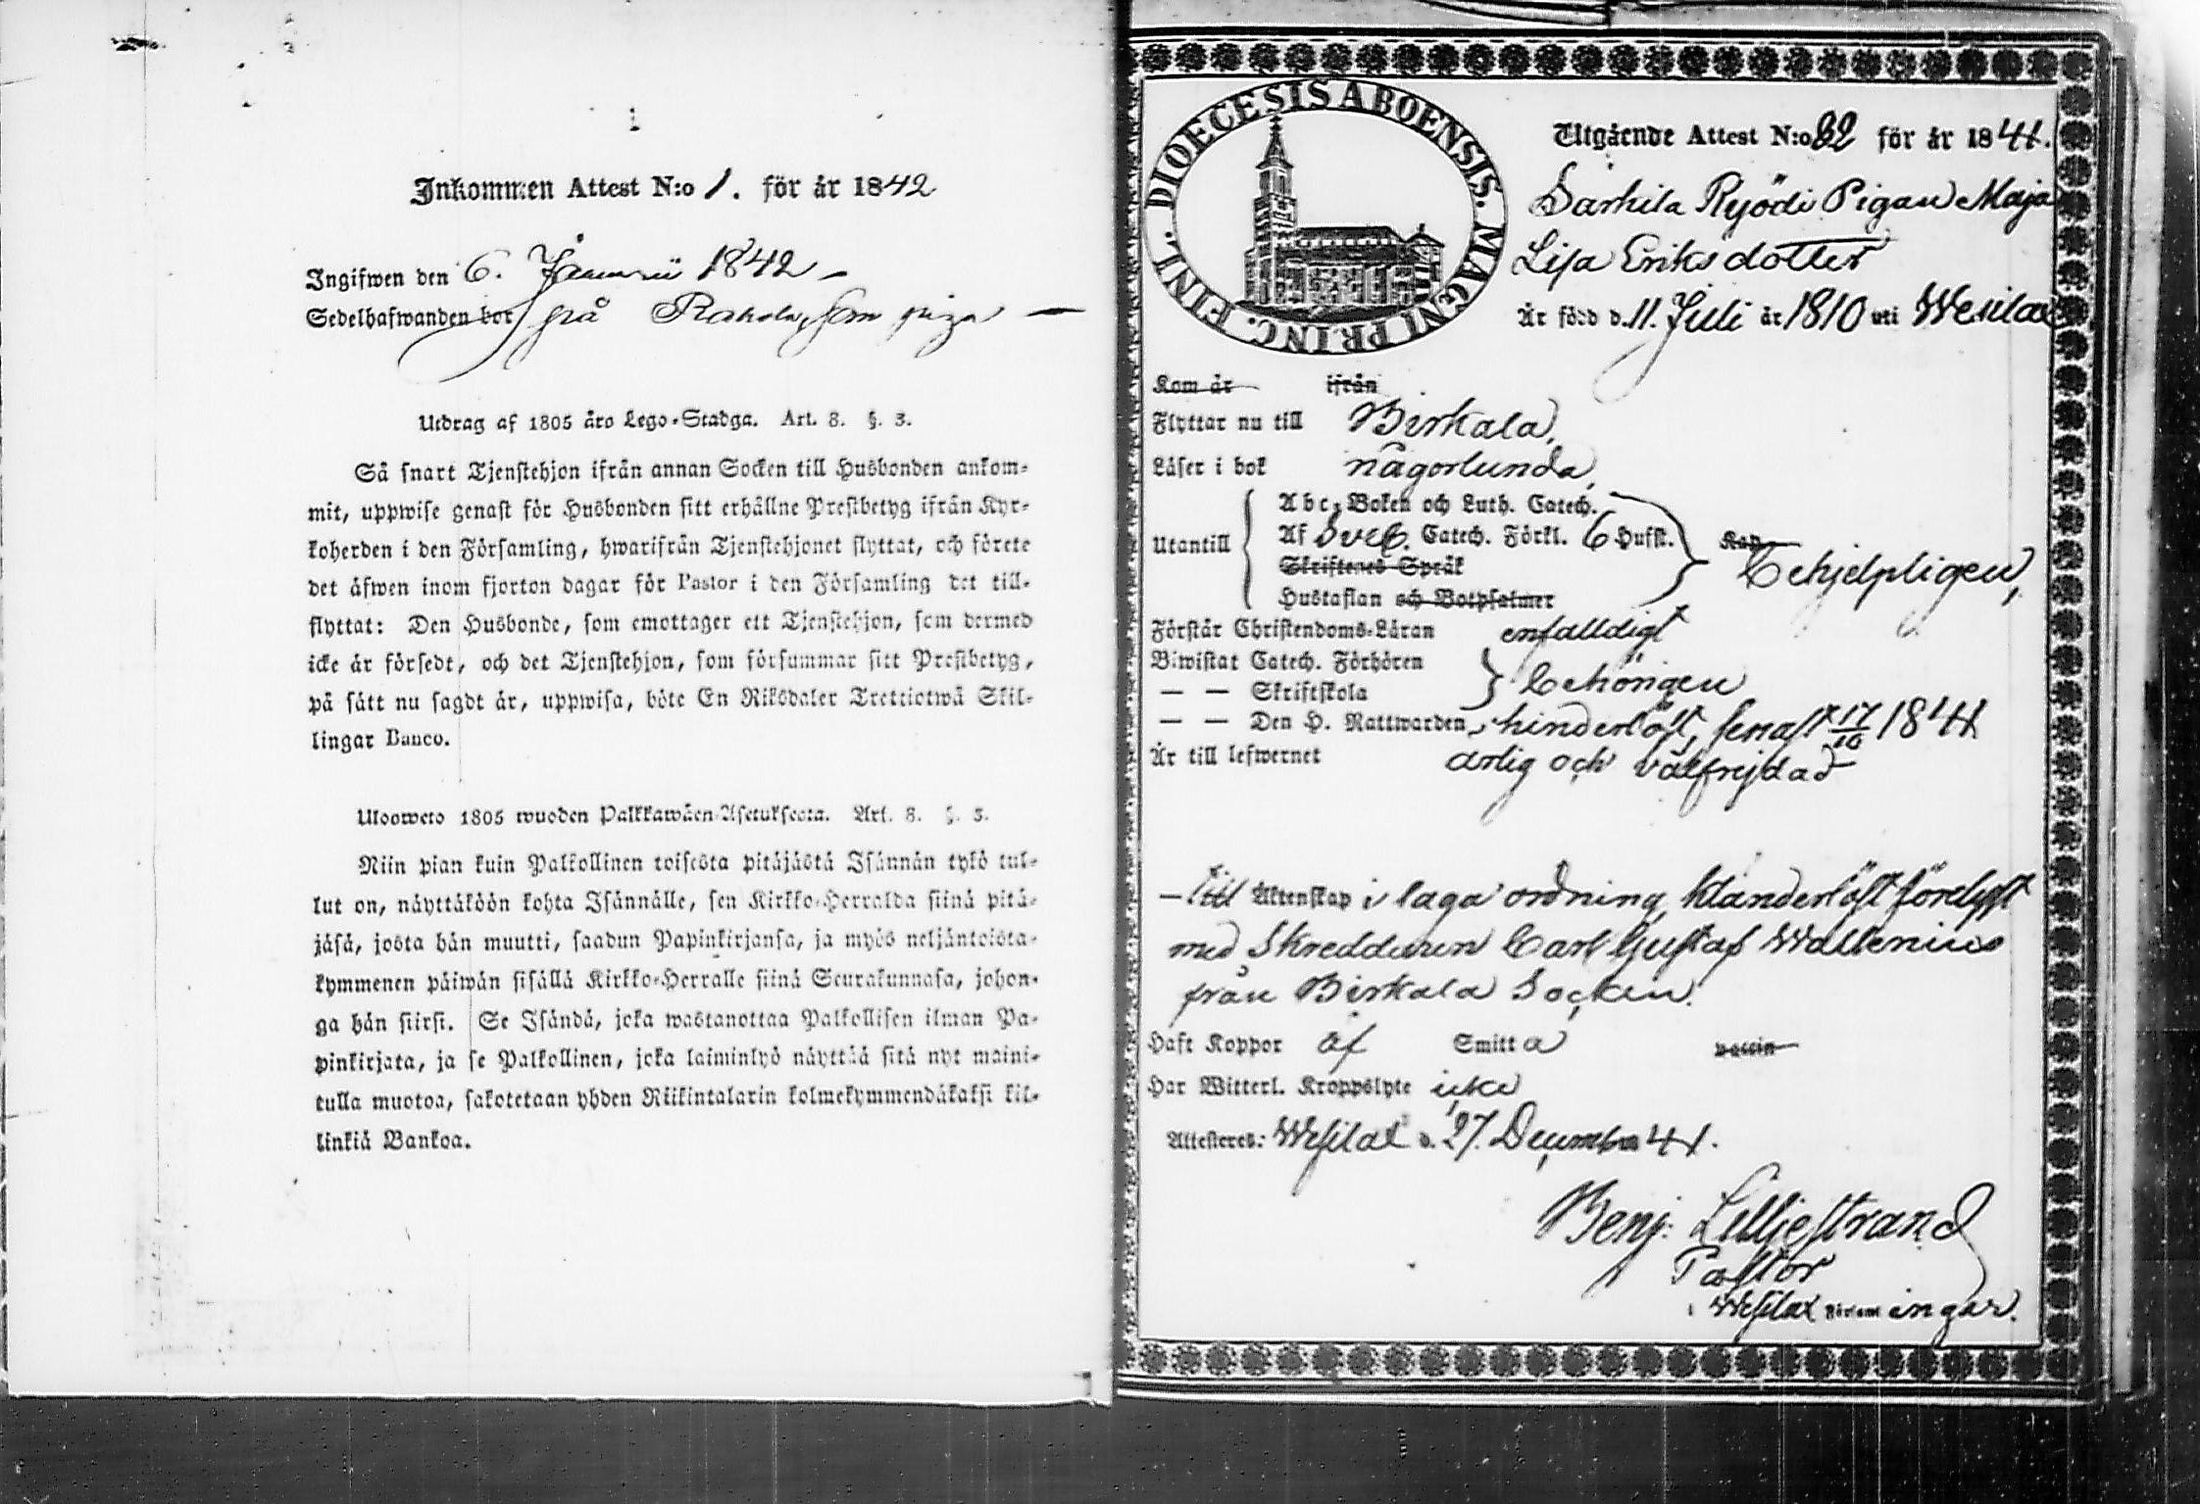 1
Inkommen Attest N:o 1. för år 1842
Ingifwen den 6. Januarii 1842 –
Sedelhafwanden bor på Rahola, som piga —
Utdrag af 1805 års Lego-Stadga. Art. 8. §. 3.
Så snart Tjenstehjon ifrån annan Socken till Husbonden ankom-
mit, uppwise genast för Husbonden sitt erhållne Prestbetyg ifrån Kyr-
koherden i den Församling, hwarifrån Tjenstehjonet flyttat, och förete
det äfwen inom fjorton dagar för Pastor i den Församling det till-
flyttat: Den Husbonde, som emottager ett Tjenstehjon, som dermed
icke är försedt, och det Tjenstehjon, som försummar sitt Prestbetyg,
på sätt nu sagdt är, uppwisa, böte En Riksdaler Trettiotwå Skil-
lingar Banco.
Ulosweto 1805 wuoden Palkkawäen-Asetuksesta. Art. 8. §. 3.
Niin pian kuin Palkollinen toisesta pitäjästä Isännän tykö tul-
lut on, näyttäköön kohta Isännälle, sen Kirkko-Herralda siinä pitä-
jäsä, josta hän muutti, saadun Papinkirjansa, ja myös neljäntoista-
kymmenen päiwän sisällä Kirkko-Herralle siinä Seurakunnasa, johon-
ga hän siirsi. Se Isändä, joka wastanottaa Palkollisen ilman Pa-
pinkirjata, ja se Palkollinen, joka laiminlyö näyttää sitä nyt maini-
tulla muotoa, sakotetaan yhden Riikintalarin kolmekymmendäkaksi kil-
linkiä Bankoa.
DIOECESIS ABOENSIS. MAGNI PRINC. FINL.
Utgående Attest N:o 82 för år 1841.
Särkila Ryödi Pigan Maja
Lisa Eriksdotter
Är född d. 11. Juli år 1810 uti Wesilax
Kom år ifrån
Flyttar nu till Birkala,
Läser i bok någorlunda,
Utantill
Abc-Boken och Luth. Catech.
Af Sveb. Catech. Förkl. 6 Hufst.
Skriftenes Språk
Hustaflan och Botpsalmer
Kan
behjelpligen,
Förstår Christendoms-Läran enfalldigt
Biwistat Catech. Förhören
— — Skriftskola behörigen
— — Den H. Nattwarden, hinderlöst, senast 17/10 1841
Är till lefwernet ärlig och välfrejdad
– Till Äktenskap i laga ordning, klanderlöst förelyst
med Skreddaren Carl Gustaf Wallenius
från Birkala Socken.
Haft Koppor af Smitta vaccin
Har Witterl. Kroppslyte icke
Attesteres: Wesilax d. 27. December 41.
Benj. Lilljestrand
Pastor
i Wesilax Församlingar.